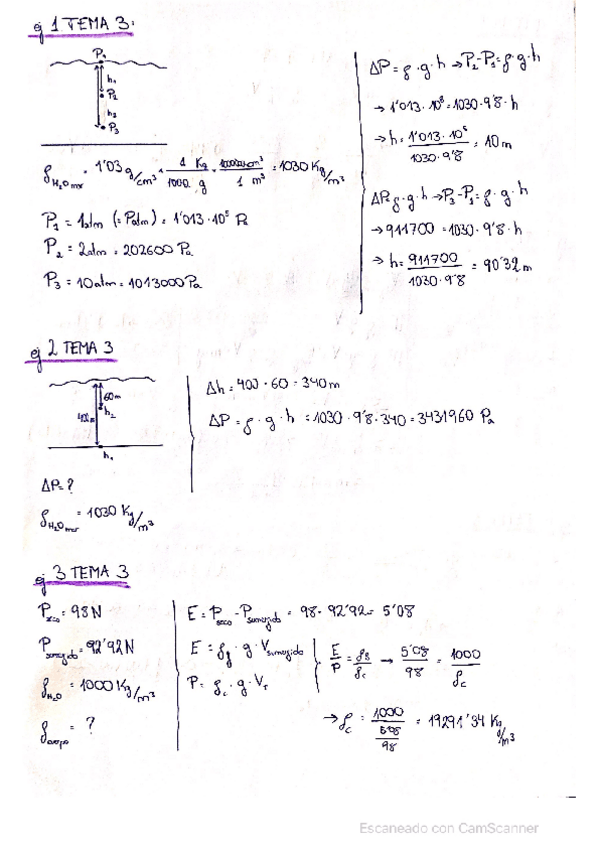 ej 1 TEMA 3:
P₁
h₁
P₂
h₂
P₃
ρH₂O mar = 1'03 g/cm³ · 1 Kg / 1000 g · 1000000 cm³ / 1 m³ = 1030 Kg/m³
P₁ = 1atm (= Patm) = 1'013 · 10⁵ Pa
P₂ = 2atm = 202600 Pa
P₃ = 10atm = 1013000 Pa
ΔP = ρ · g · h → P₂-P₁ = ρ · g · h
→ 1'013 · 10⁵ = 1030 · 9'8 · h
→ h = 1'013 · 10⁵ / 1030 · 9'8 = 10 m
ΔP= ρ · g · h → P₃-P₁ = ρ · g · h
→ 911700 = 1030 · 9'8 · h
→ h = 911700 / 1030 · 9'8 = 90'32 m
ej 2 TEMA 3
60m
h₂
400m
h₁
ΔP = ?
ρH₂O mar = 1030 Kg/m³
Δh = 400 - 60 = 340 m
ΔP = ρ · g · h = 1030 · 9'8 · 340 = 3431960 Pa
ej 3 TEMA 3
Pseco = 98 N
Psumergido = 92'92 N
ρH₂O = 1000 Kg/m³
ρcuerpo = ?
E = Pseco - Psumergido = 98 - 92'92 = 5'08
E = ρf · g · Vsumergido
P = ρc · g · VT
E/P = ρf/ρc → 5'08/98 = 1000/ρc
→ ρc = 1000 / 5'08/98 = 19291'34 Kg/m³
Escaneado con CamScanner